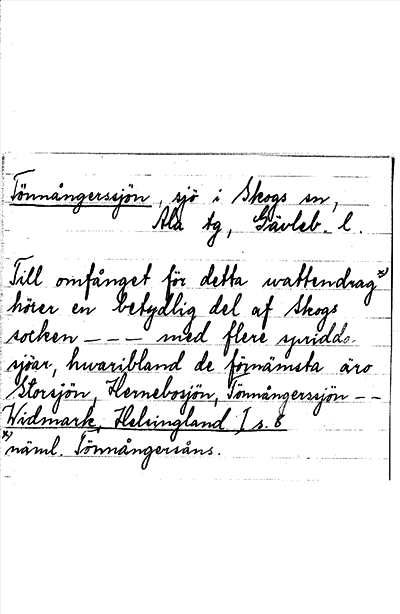 Tönnångerssjön, sjö i Skogs sn,
Ala tg, Gävleb. l.
Till omfånget för detta wattendrag*)
hörer en betydlig del af Skogs
socken - - - med flere spridda
sjöar, hwaribland de förnämsta äro
Storsjön, Hernebosjön, Tönnångerssjön - -
Widmark, Helsingland I s. 8
*) näml. Tönnångersåns.